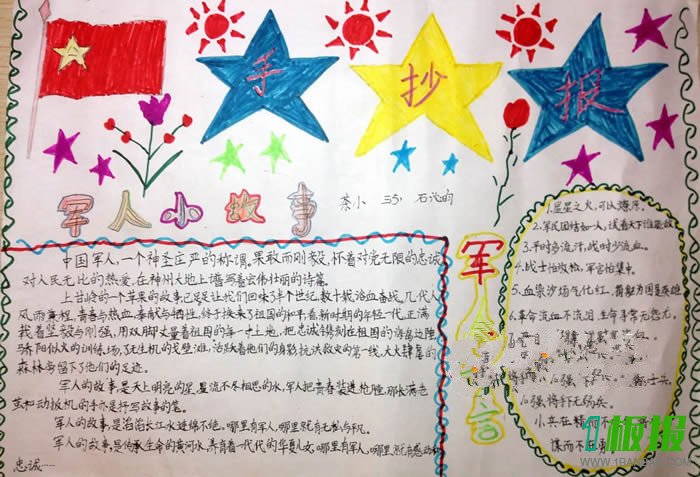 手抄报
军人小故事
茶小 三5班 石沁昀
中国军人,一个神圣庄严的称谓。果敢而刚毅,怀着对党无限的忠诚
对人民无比的热爱,在神州大地上谱写着宏伟壮丽的诗篇。
上甘岭的一个苹果的故事已足足让我们回味了半个世纪,数十载浴血奋战,几代人
风雨兼程,青春与热血,奉献与牺牲,终于换来了祖国的和平,看新时期的年轻一代,正满
载着坚毅与刚强,用双脚丈量着祖国的每一寸土地,把忠诚镌刻在祖国的海岛边陲
与骄阳似火的训练场,了无生机的戈壁滩,活跃着他们的身影,抗洪救灾的第一线,大火肆虐的
森林旁留下了他们的足迹。
军人的故事是天上明亮的星,星流不尽相思的水,军人把青春装进枪膛,那长满老
茧扣动扳机的手亦是抒写故事的笔。
军人的故事,是滔滔长江水连绵不绝,哪里有军人,哪里就有无私与平凡。
军人的故事,是传承生命的黄河水,养育着一代代的华夏儿女,哪里有军人,哪里就有感动和
忠诚……
军人
言
1.星星之火,可以燎原。
2.军民团结如一人,试看天下谁能敌
3.平时多流汗,战时少流血。
4.战士怕改枪,军官怕集中。
5.血染沙场气化虹,捐躯为国是英雄
6.革命流血不流泪,生命寻常无怨尤。
10强将手下无弱兵。
小兵在精而不
谋而不在
1板报
WWW.1BANBAO.COM